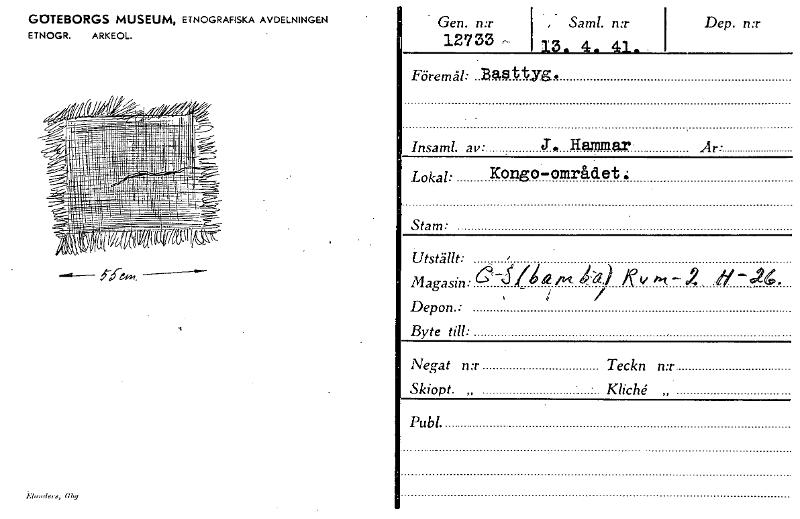 GÖTEBORGS MUSEUM, ETNOGRAFISKA AVDELNINGEN
ETNOGR. ARKEOL.
55 cm.
Elanders, Gbg
Gen. n:r Saml. n:r Dep. n:r
12733 13. 4. 41.
Föremål: Basttyg.
Insaml. av: J. Hammar År:
Lokal: Kongo-området.
Stam:
Utställt:
Magasin: (bamba) Rum-2. H-26.
Depon.:
Byte till:
Negat n:r Teckn n:r
Skiopt. „ Kliché „
Publ.